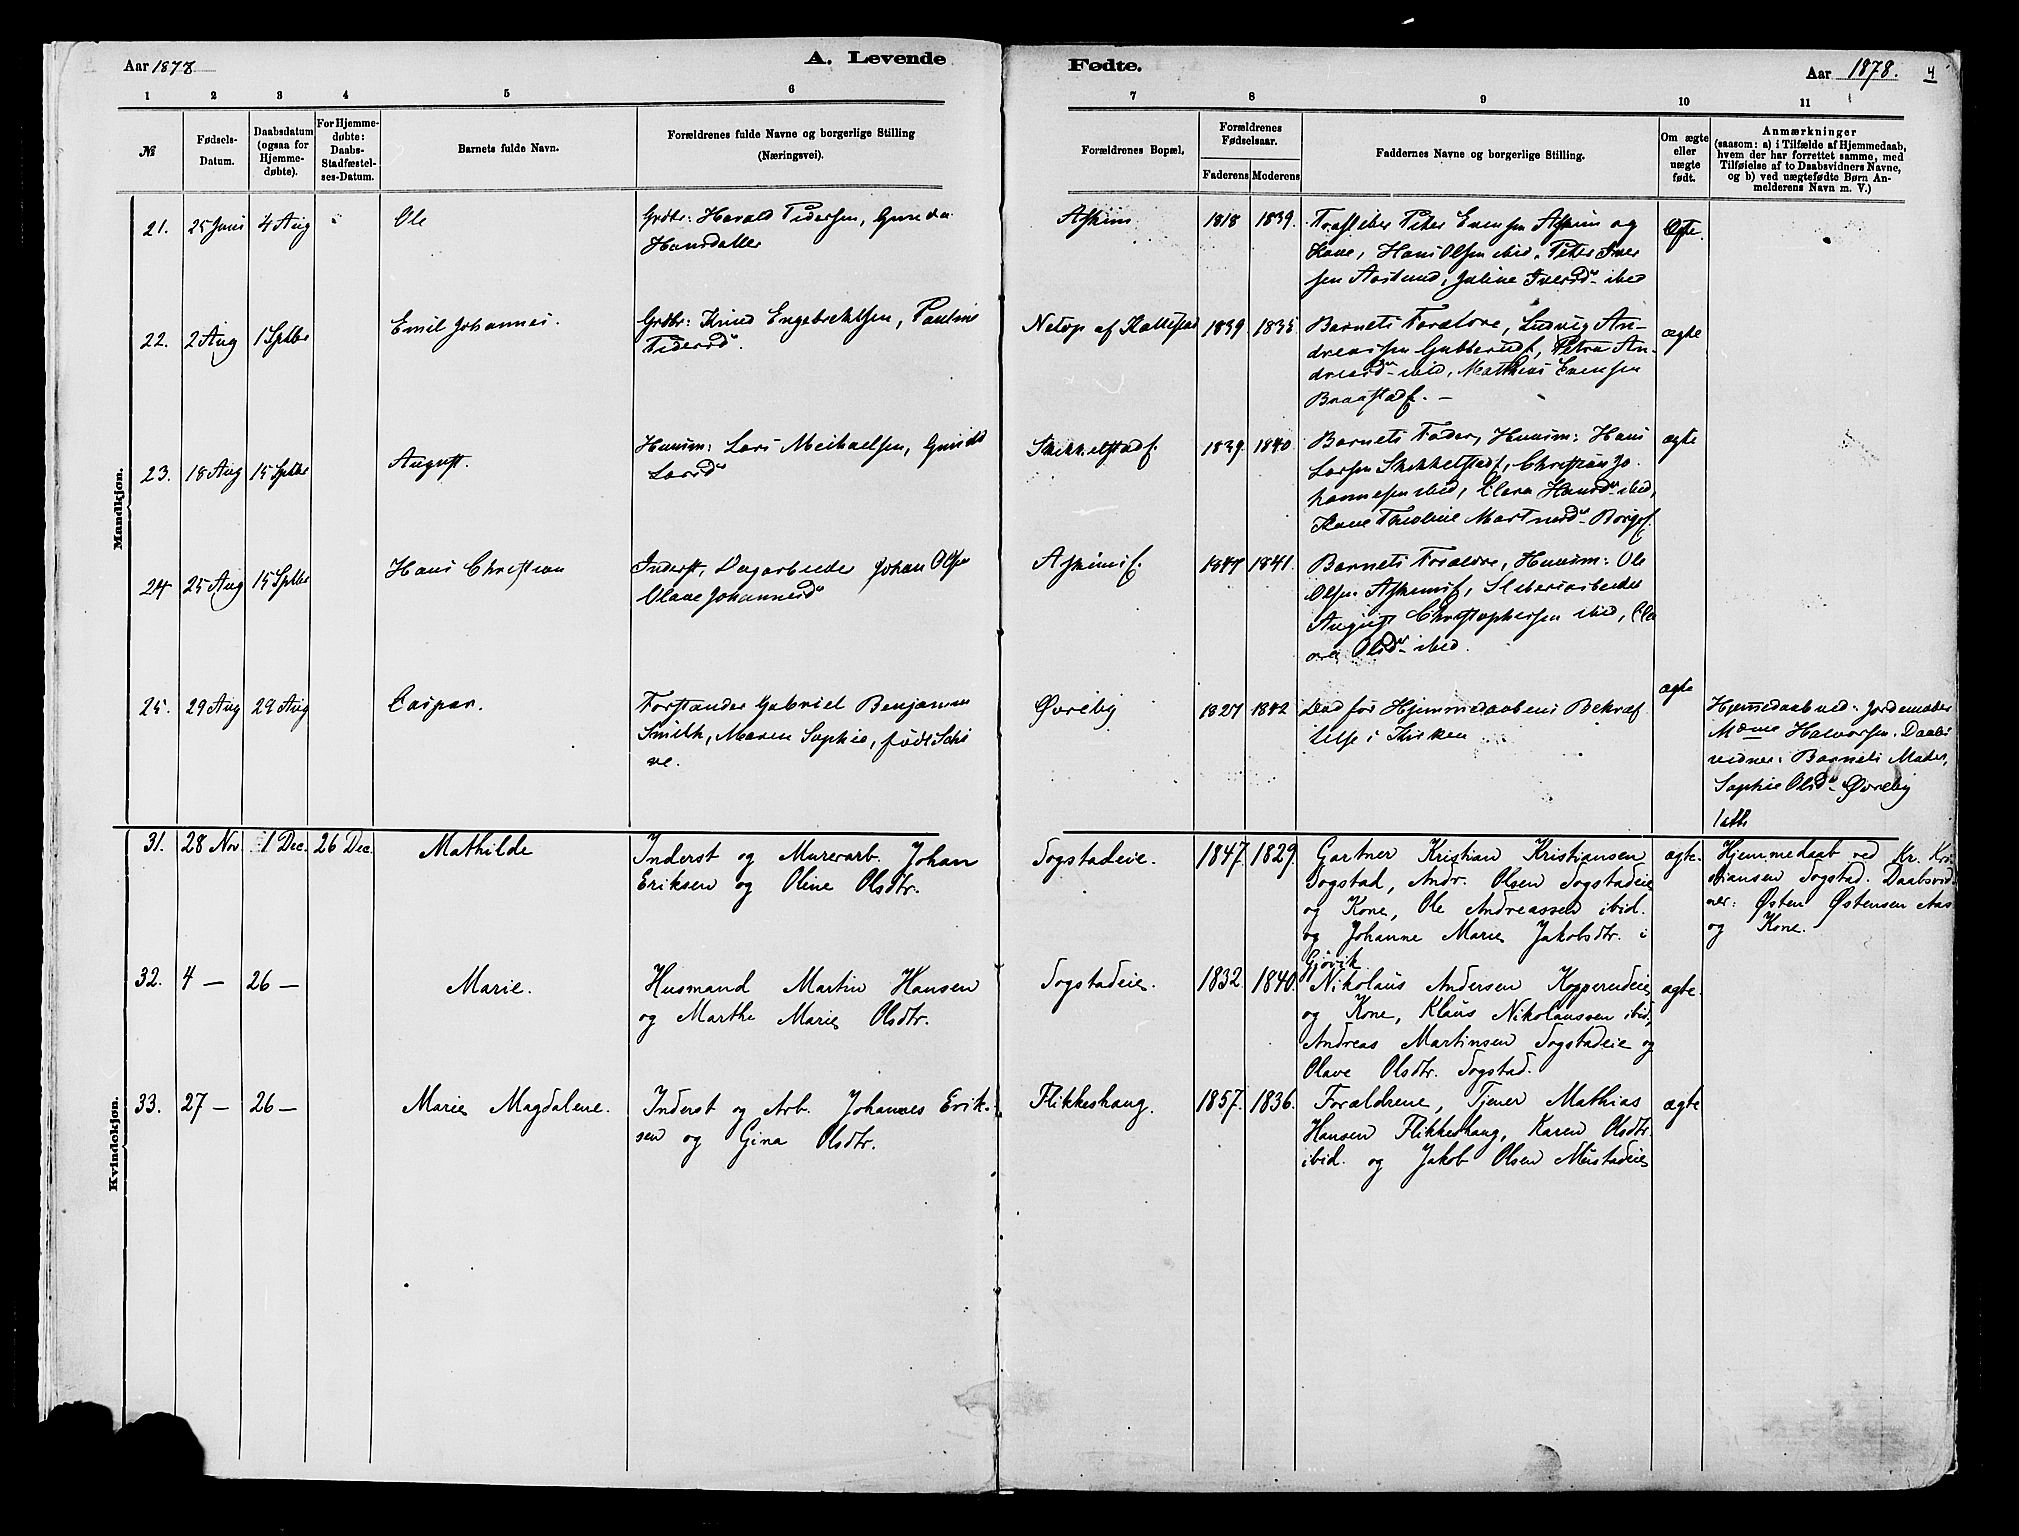 Aar 1878
A. Levende
Fødte.
Aar 1878.
4
1 2 3 4 5 6 7 8 9 10 11
№
Fødsels-
Datum.
Daabsdatum
(ogsaa for
Hjemme-
døbte).
For Hjemme-
døbte:
Daabs-
Stadfæstel-
ses-Datum.
Barnets fulde Navn.
Forældrenes fulde Navne og borgerlige Stilling
(Næringsvei).
Forældrenes Bopæl,
Forældrenes
Fødselsaar.
Faderens Moderens
Faddernes Navne og borgerlige Stilling.
Om ægte
eller
uægte
født.
Anmærkninger
(saasom: a) i Tilfælde af Hjemmedaab,
hvem der har forrettet samme, med
Tilføielse af to Daabsvidners Navne,
og b) ved uægtefødte Børn An-
melderens Navn m. V.)
Mandkjøn.
21. 25 Juni 4 Aug Ole
Grdbr: Harald Pedersen, Gunda
Hansdatter
Askim 1818 1839.
Peter Evensen Askim og
Kone, Hans Olsen ibid. Peter Iver
sen Aaslund, Juline Iversdr ibid
Ægte.
22. 2 Aug 1 Sptbr Emil Johannes.
Grdbr: Knud Engebrethsen, Pauline
Pedersdr.
Netop af Kallestad 1839 1835
Barnets Forældre, Ludvig An-
dreassen Gubberud, Petra An-
dreasdr ibid, Mathias Evensen
Braastad. -
ægte
23. 18 Aug 15 Sptbr August.
Husm: Lars Meihaelsen,
Larsd
Skikkelstadf. 1839 1840
Barnets Fader, Husm: Hans
Larsen Skikkelstadf, Christian Jo
hannesen ibid, Clara Hansdr ibid,
ægte
24 25 Aug 15 Sptbr Hans Christian
Inderst, Dagarbeider Johan Olsen
Olave Johannesdr
Askimsf. 1841.
Barnets Forældre, Husm: Ole
Olsen Askimsf, Sliberiarbeider
August Christophersen ibid, Cla
ra Olsdr ibid.
25. 29 Aug 29 Aug Caspar.
Forstander Gabriel Benjamin
Smith, Maren Sophie, født Schi
ve.
Øvreby 1827 1842
Død før Hjemmedaabens Bekræf
telse i Kirken
ægte
Hjemmedaab ved: Jordemoder
Halvorsen. Daabs
vidner: Barnets Moder,
Sophie Olsdr Øvreby
Kvindekjøn.
31. 28 Nov 1 Dec. 26 Dec. Mathilde
Inderst og Murerarb. Johan
Eriksen og Oline Olsdtr.
Sogstadeie. 1847. 1829.
Gartner Kristian Kristiansen
Sogstad, Andr. Olsen Sogstadeie
og Kone, Ole Andreassen ibid.
og Johanne Marie Jakobsdtr. i
Gjøvik
ægte.
Hjemmedaab ved Kr. Kri
stiansen Sogstad. Daabsvid
ner: Østen Østensen Aas
og Kone.
32. 4 — 26 — Marie.
Husmand Martin Hansen
og Marthe Marie Olsdtr.
Sogstadeie. 1832. 1840.
Nikolaus Andersen Kopperudeie
og Kone, Klaus Nikolaussen ibid.,
Andreas Martinsen Sogstadeie og
Olave Olsdtr. Sogstad.
ægte.
33. 27 — 26 — Marie Magdalene.
Inderst og Arb. Johannes Erik-
sen og Gina Olsdtr.
Flikkeshaug. 1857. 1836.
Forældrene, Tjener Mathias
Hansen Flikkeshaug, Karen Olsdtr.
ibid. og Jakob Olsen Mustadeie
ægte